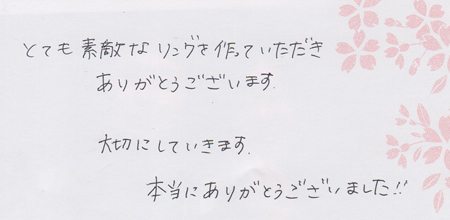 とても素敵なリングを作っていただき
ありがとうございます.
大切にしていきます.
本当にありがとうございました!!